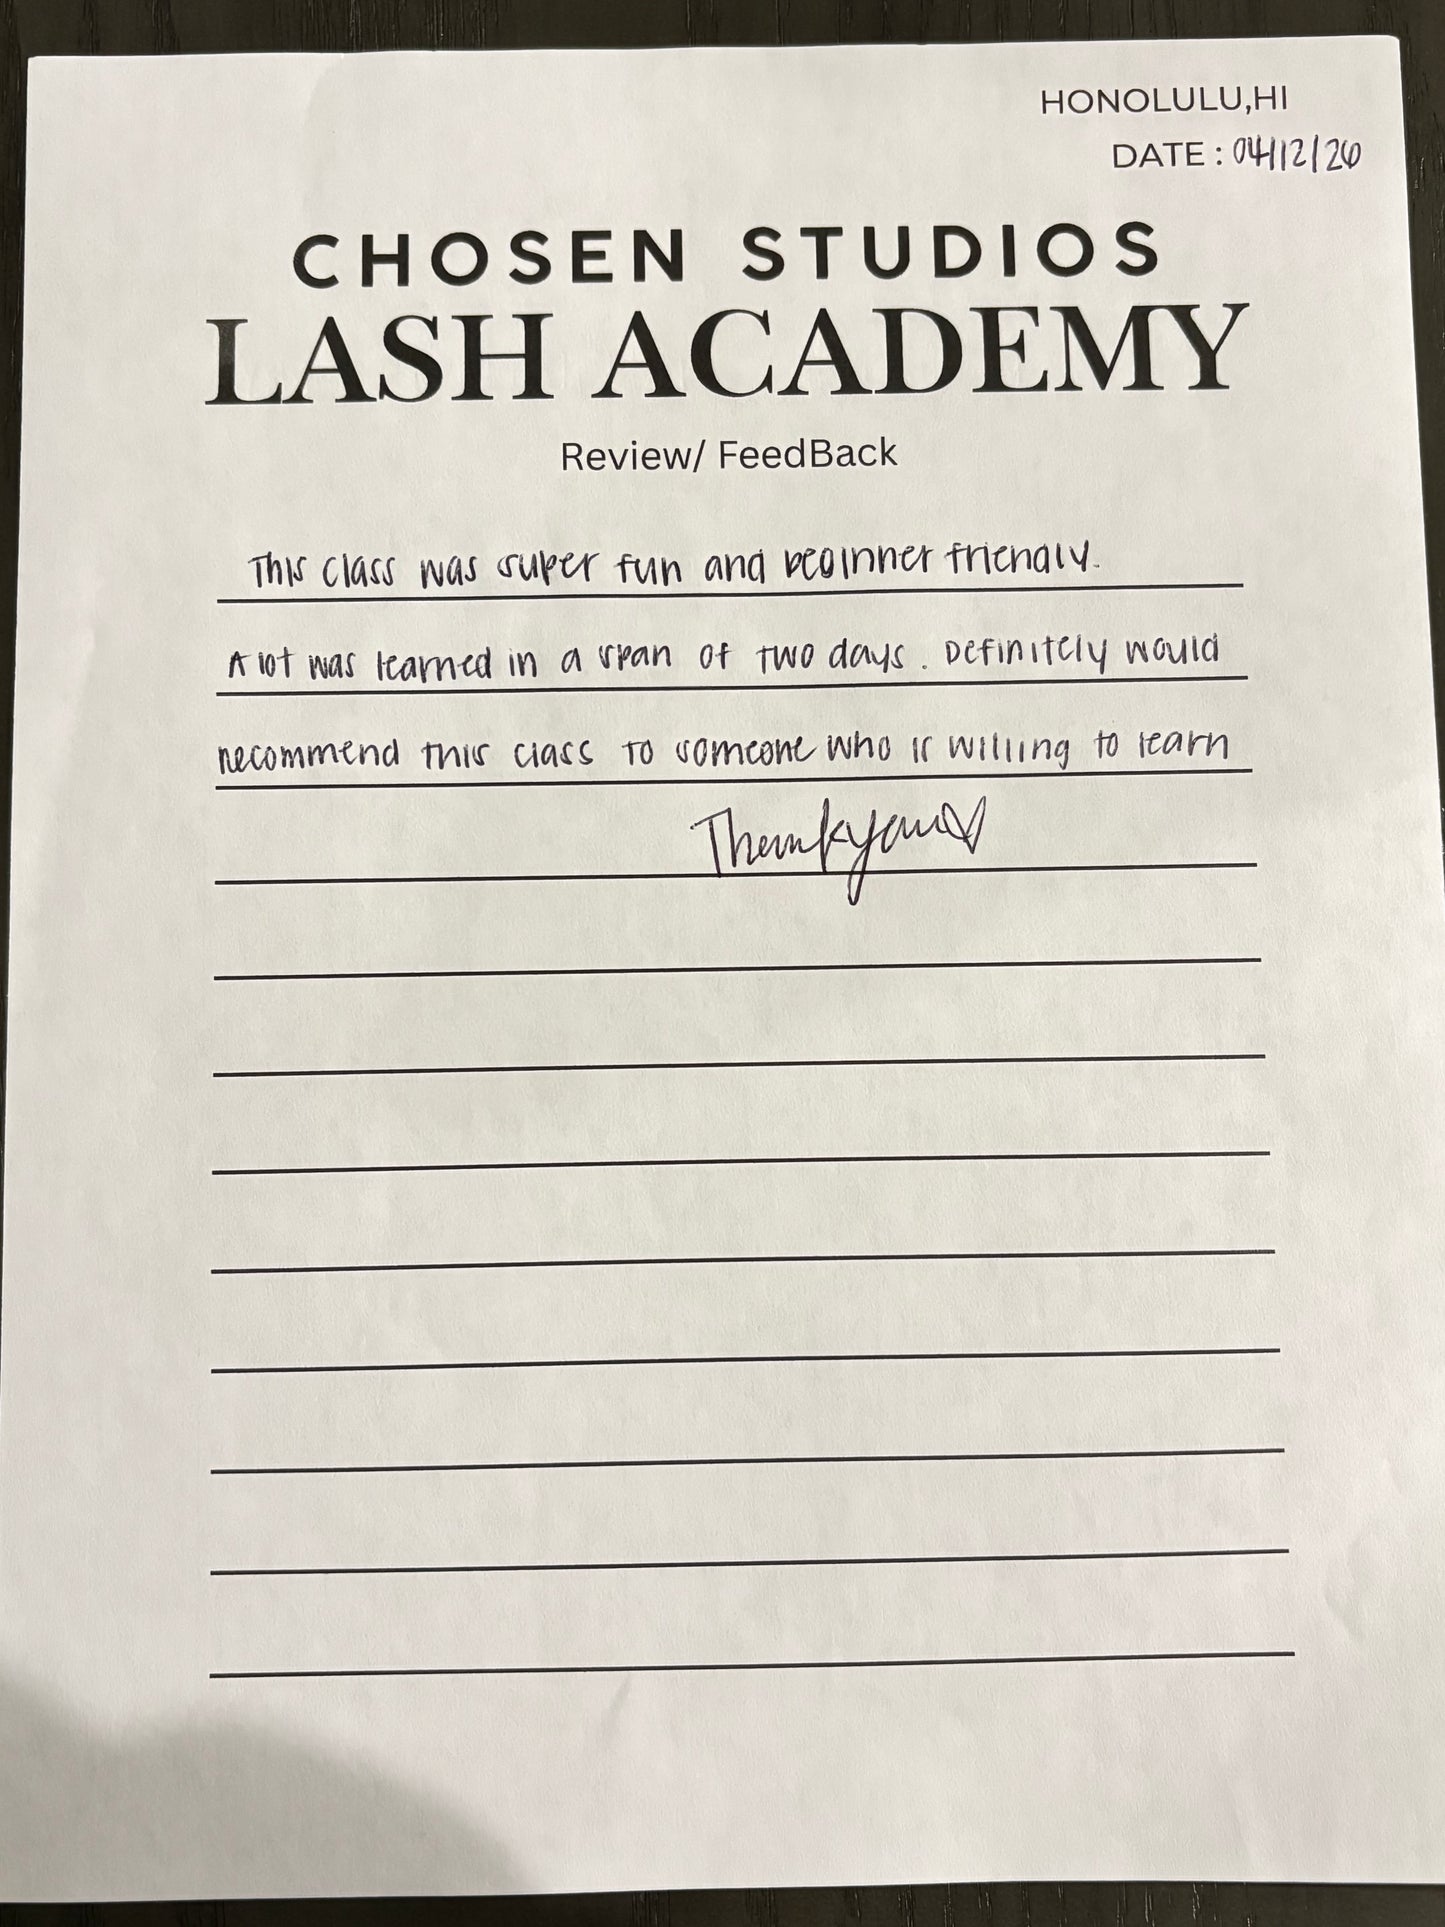 HONOLULU,HI
DATE : 04/12/26
CHOSEN STUDIOS
LASH ACADEMY
Review/ FeedBack
This class was super fun and beginner friendly.
A lot was learned in a span of two days. Definitely would
recommend this class to someone who is willing to learn
Thankyou♡